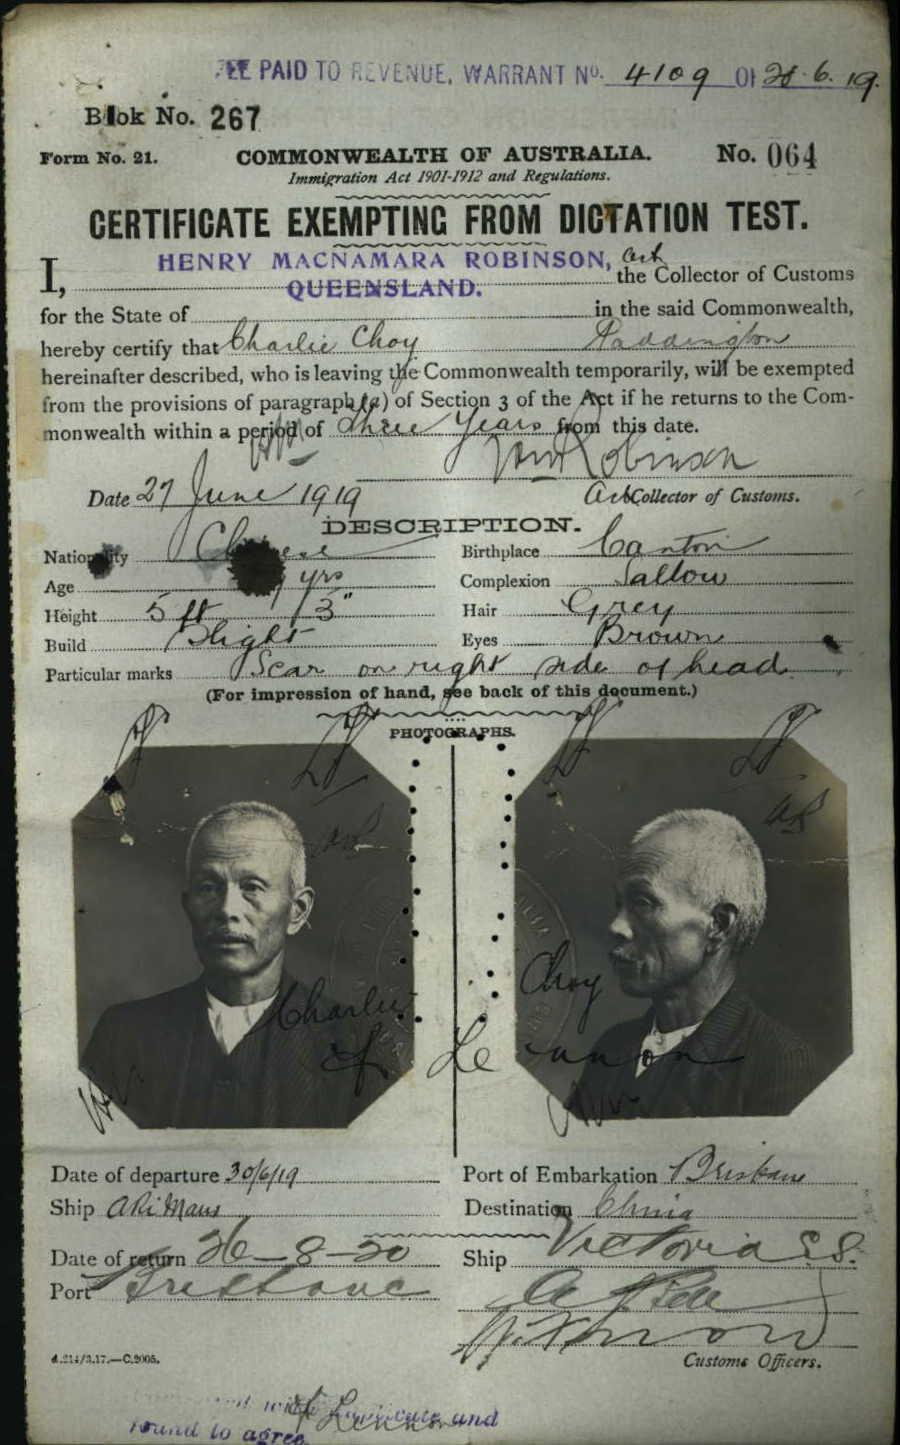 FEE PAID TO REVENUE, WARRANT No. 4109 OF 28.6.19.
Book No. 267
Form No. 21. COMMONWEALTH OF AUSTRALIA. No. 064
Immigration Act 1901-1912 and Regulations.
CERTIFICATE EXEMPTING FROM DICTATION TEST.
I, HENRY MACNAMARA ROBINSON, Act the Collector of Customs
for the State of QUEENSLAND. in the said Commonwealth,
hereby certify that Charlie Choy Paddington
hereinafter described, who is leaving the Commonwealth temporarily, will be exempted
from the provisions of paragraph (a) of Section 3 of the Act if he returns to the Com-
monwealth within a period of Three Years from this date.
Robinson
Date 27 June 1919 Act Collector of Customs.
DESCRIPTION.
Nationality Chinese Birthplace Canton
Age yrs Complexion Sallow
Height 5 ft 3" Hair Grey
Build Slight Eyes Brown
Particular marks Scar on right side of head
(For impression of hand, see back of this document.)
PHOTOGRAPHS.
Charlie Choy
Lennon
Date of departure 30/6/19 Port of Embarkation Brisbane
Ship Aki Maru Destination China
Date of return 26-8-20 Ship Victoria S.S.
Port Brisbane
A.214/3.17.—C.2005. Customs Officers.
and
found to agree